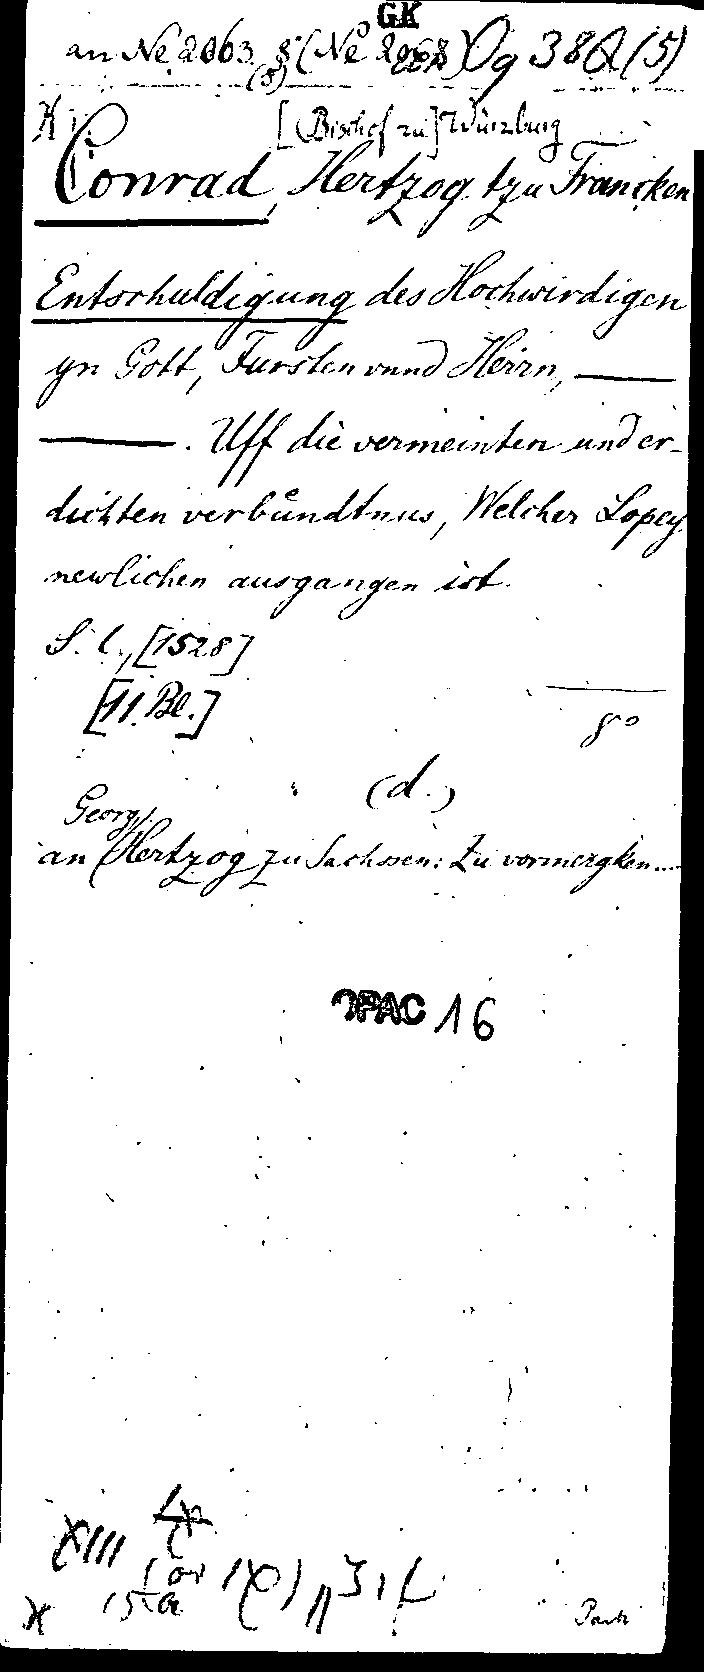 GK
an Ne 2063, 8° (Ne Og 38Q (5)
(8)
[(Bischof zu] Würzburg
Conrad, Hertzog tzu Francken
Entschuldigung des Hochwirdigen
yn Gott, Fursten vnnd Herrn, —
—. Uff die vermeinten und er-
dichten verbundtnus, Welcher Copey
newlichen ausgangen ist.
S. l., [1528]
[11. Bl.]
8°
(d.)
Georg,
an Hertzog zu Sachssen: Zu vormergken....
OPAC 16
XIII